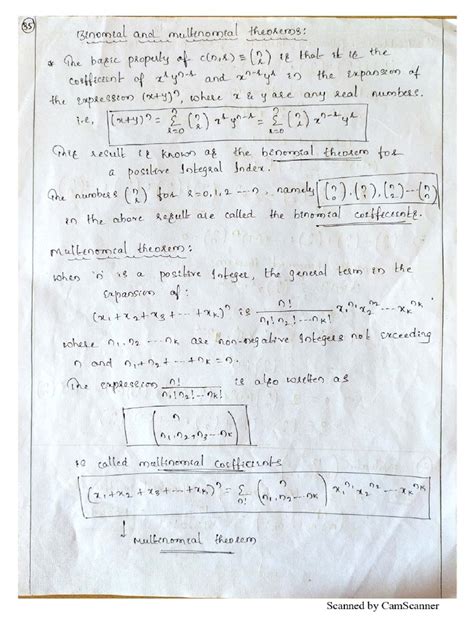 35
Binomial and multinomial theorems:
* The basic property of c(n,r) ≡ (n r) is that it is the
coefficient of x^r y^n-r and x^n-r y^r in the expansion of
the expression (x+y)^n, where x & y are any real numbers.
i.e, (x+y)^n = Σ_{r=0}^{n} (n r) x^r y^n-r = Σ_{r=0}^{n} (n r) x^n-r y^r
This result is known as the binomial theorem for
a positive Integral Index.
The numbers (n r) for r=0,1,2 --- n, namely (n 0), (n 1), (n 2) --- (n n)
in the above result are called the binomial coefficients.
Multinomial theorem:
When 'n' is a positive Integer, the general term in the
expansion of:
(x1+x2+x3+---+xk)^n is n!/(n1! n2! --- nk!) x1^n1 x2^n2 --- xk^nk
where n1, n2 --- nk are non-negative Integers not exceeding
n and n1+n2+---+nk=n.
The expression n!/(n1! n2! --- nk!) is also written as
(n n1, n2, n3 --- nk)
so called multinomial coefficients
(x1+x2+x3+---+xk)^n = Σ_{n!} (n n1, n2, --- nk) x1^n1 x2^n2 --- xk^nk
↓
Multinomial theorem
Scanned by CamScanner